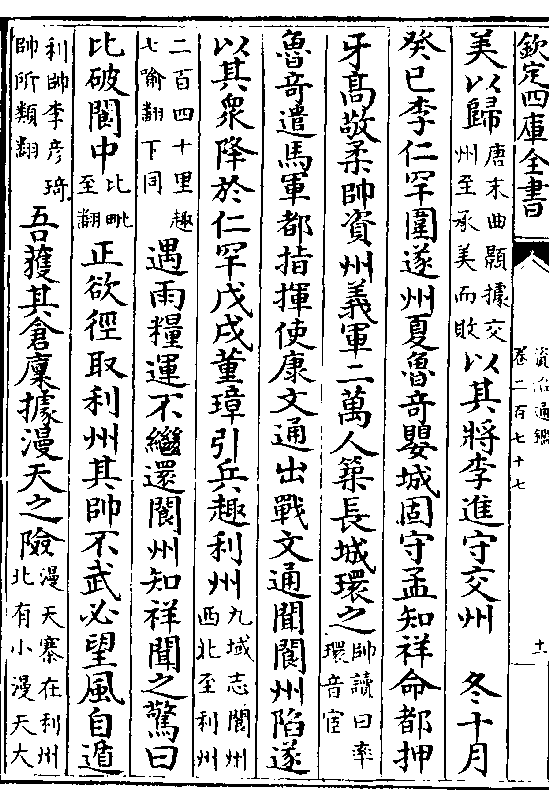 欽定四庫全書
資治通鑑
卷二百七十七
十一
美以歸唐末曲顥據交州至承美而敗以其將李進守交州　冬十月
癸巳李仁罕圍遂州夏魯奇嬰城固守孟知祥命都押
牙高敬柔帥資州義軍二萬人築長城環之帥讀曰率環音宦
魯奇遣馬軍都指揮使康文通出戰文通聞閬州陷遂
以其衆降於仁罕戊戌董璋引兵趣利州九域志閬州西北至利州
二百四十里趣七喻翻下同遇雨糧運不繼還閬州知祥聞之驚曰
比破閬中比毗至翻正欲徑取利州其帥不武必望風自遁
利帥李彥琦帥所類翻吾獲其倉廩據漫天之險漫天寨在利州北有小漫天大